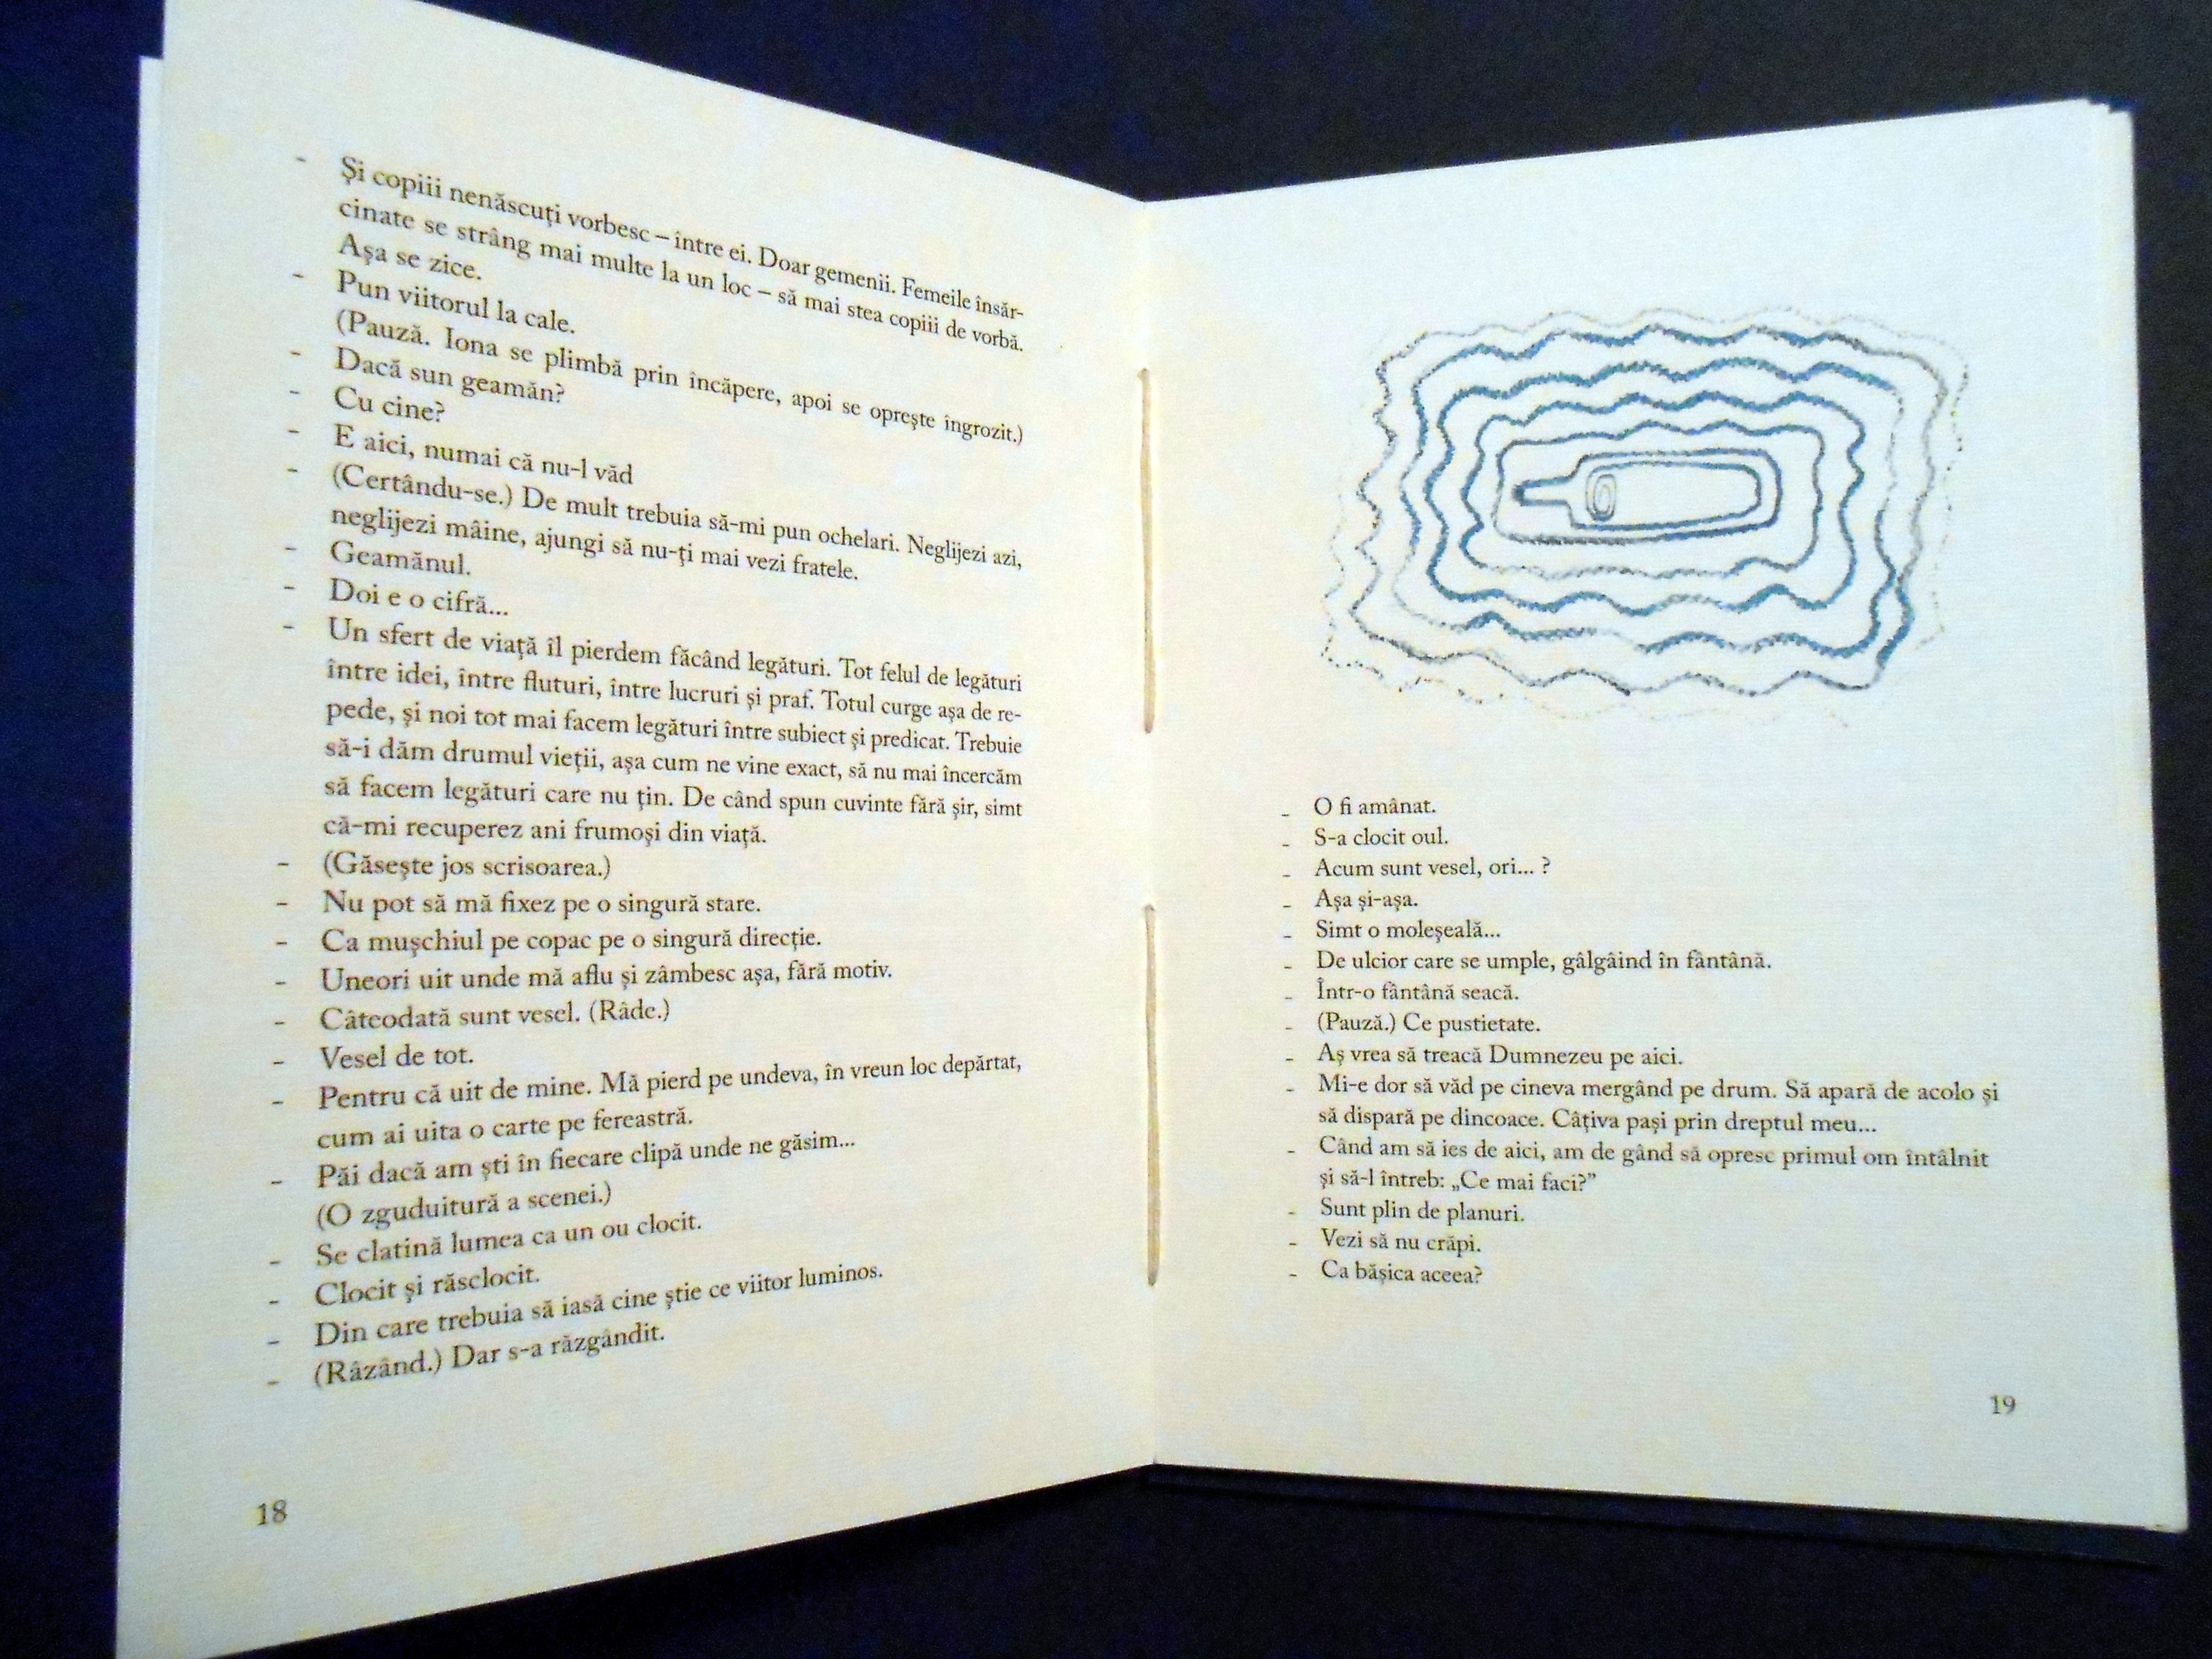 - Şi copiii nenăscuţi vorbesc – între ei. Doar gemenii. Femeile însăr-
cinate se strâng mai multe la un loc – să mai stea copiii de vorbă.
Aşa se zice.
- Pun viitorul la cale.
(Pauză. Iona se plimbă prin încăpere, apoi se opreşte îngrozit.)
- Dacă sun geamăn?
- Cu cine?
- E aici, numai că nu-l văd
- (Certându-se.) De mult trebuia să-mi pun ochelari. Neglijezi azi,
neglijezi mâine, ajungi să nu-ţi mai vezi fratele.
- Geamănul.
- Doi e o cifră...
- Un sfert de viaţă îl pierdem făcând legături. Tot felul de legături
între idei, între fluturi, între lucruri şi praf. Totul curge aşa de re-
pede, şi noi tot mai facem legături între subiect şi predicat. Trebuie
să-i dăm drumul vieţii, aşa cum ne vine exact, să nu mai încercăm
să facem legături care nu ţin. De când spun cuvinte fără şir, simt
că-mi recuperez ani frumoşi din viaţă.
- (Găseşte jos scrisoarea.)
- Nu pot să mă fixez pe o singură stare.
- Ca muşchiul pe copac pe o singură direcţie.
- Uneori uit unde mă aflu şi zâmbesc aşa, fără motiv.
- Câteodată sunt vesel. (Râde.)
- Vesel de tot.
- Pentru că uit de mine. Mă pierd pe undeva, în vreun loc depărtat,
cum ai uita o carte pe fereastră.
- Păi dacă am şti în fiecare clipă unde ne găsim...
(O zguduitură a scenei.)
- Se clatină lumea ca un ou clocit.
- Clocit şi răsclocit.
- Din care trebuia să iasă cine ştie ce viitor luminos.
- (Râzând.) Dar s-a răzgândit.
18
- O fi amânat.
- S-a clocit oul.
- Acum sunt vesel, ori... ?
- Aşa şi-aşa.
- Simt o moleşeală...
- De ulcior care se umple, gâlgâind în fântână.
- Într-o fântână seacă.
- (Pauză.) Ce pustietate.
- Aş vrea să treacă Dumnezeu pe aici.
- Mi-e dor să văd pe cineva mergând pe drum. Să apară de acolo şi
să dispară pe dincoace. Câţiva paşi prin dreptul meu...
- Când am să ies de aici, am de gând să opresc primul om întâlnit
şi să-l întreb: „Ce mai faci?”
- Sunt plin de planuri.
- Vezi să nu crăpi.
- Ca băşica aceea?
19